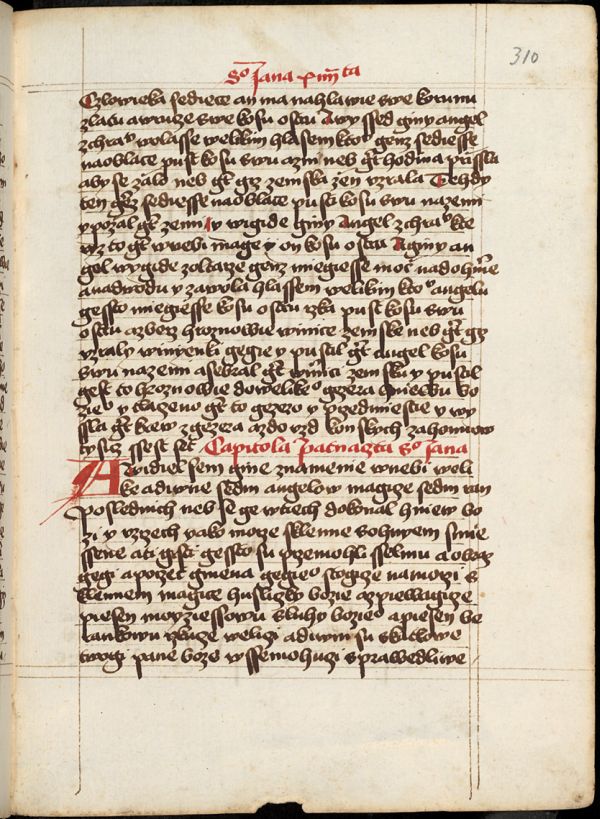 310
So Jana xiiii ta
Czlowieka sediece an ma nahlawie swe korunu
zlatu awruze swe kosu ostru Awyssed giny angel
zchrao wolasse welikim hlasem ktoo genz sediesse
naoblace pust kosu swu azni neb gt hodina prissla
aby se zalo neb gt giz zemska zen vzrala Tehdy
ten genz sediesse naoblace pusti kosu swu nazemi
y pozal gt zemi y wigide giny Angel zchrao kte
ryz to gt wnebi mage y on kosu ostru Aginy an
gel wygide zoltarze genz miegiesse moc nadohnie
anadwodu y zawola hlassem welikim ktoo angelu
gessto miegiesse kosu ostru rzka pust kosu swu
ostru azberz hroznowie winice zemske neb gt giz
vzraly winyenki gegie y pustil gt angel kosu
swu nazemi asebral gt winici zemsku y pustil
gest to hroznowie dowelikeo gezera hniewu bo
zieo y tlazeno gt to gezero y przedmiestie y wy
ssla gt krew zgezera azdo vzd konskych zahonuow
tysicz ssest set Capitola patnazta So Jana
Awidiel sem gine znamenie wnebi weli
ke adiwne sedm angelow magize sedm ran
poslednich neb se ge wtiech dokonal hniew bo
zi y vzrzech yako morze sklenne sohnyem smie
ssene ati gisti gessto su przemohli sselmu a obraz
gegi apoczet gmena gegieo stogize namorzi s
klennem magice huslizky bozie azpiewagize
piesen moyziessowu sluhy bozieo apiesen be
rankowu rkuze welizi adiwni su skutkowe
twogi pane boze wssemohuzi sprawedliwe